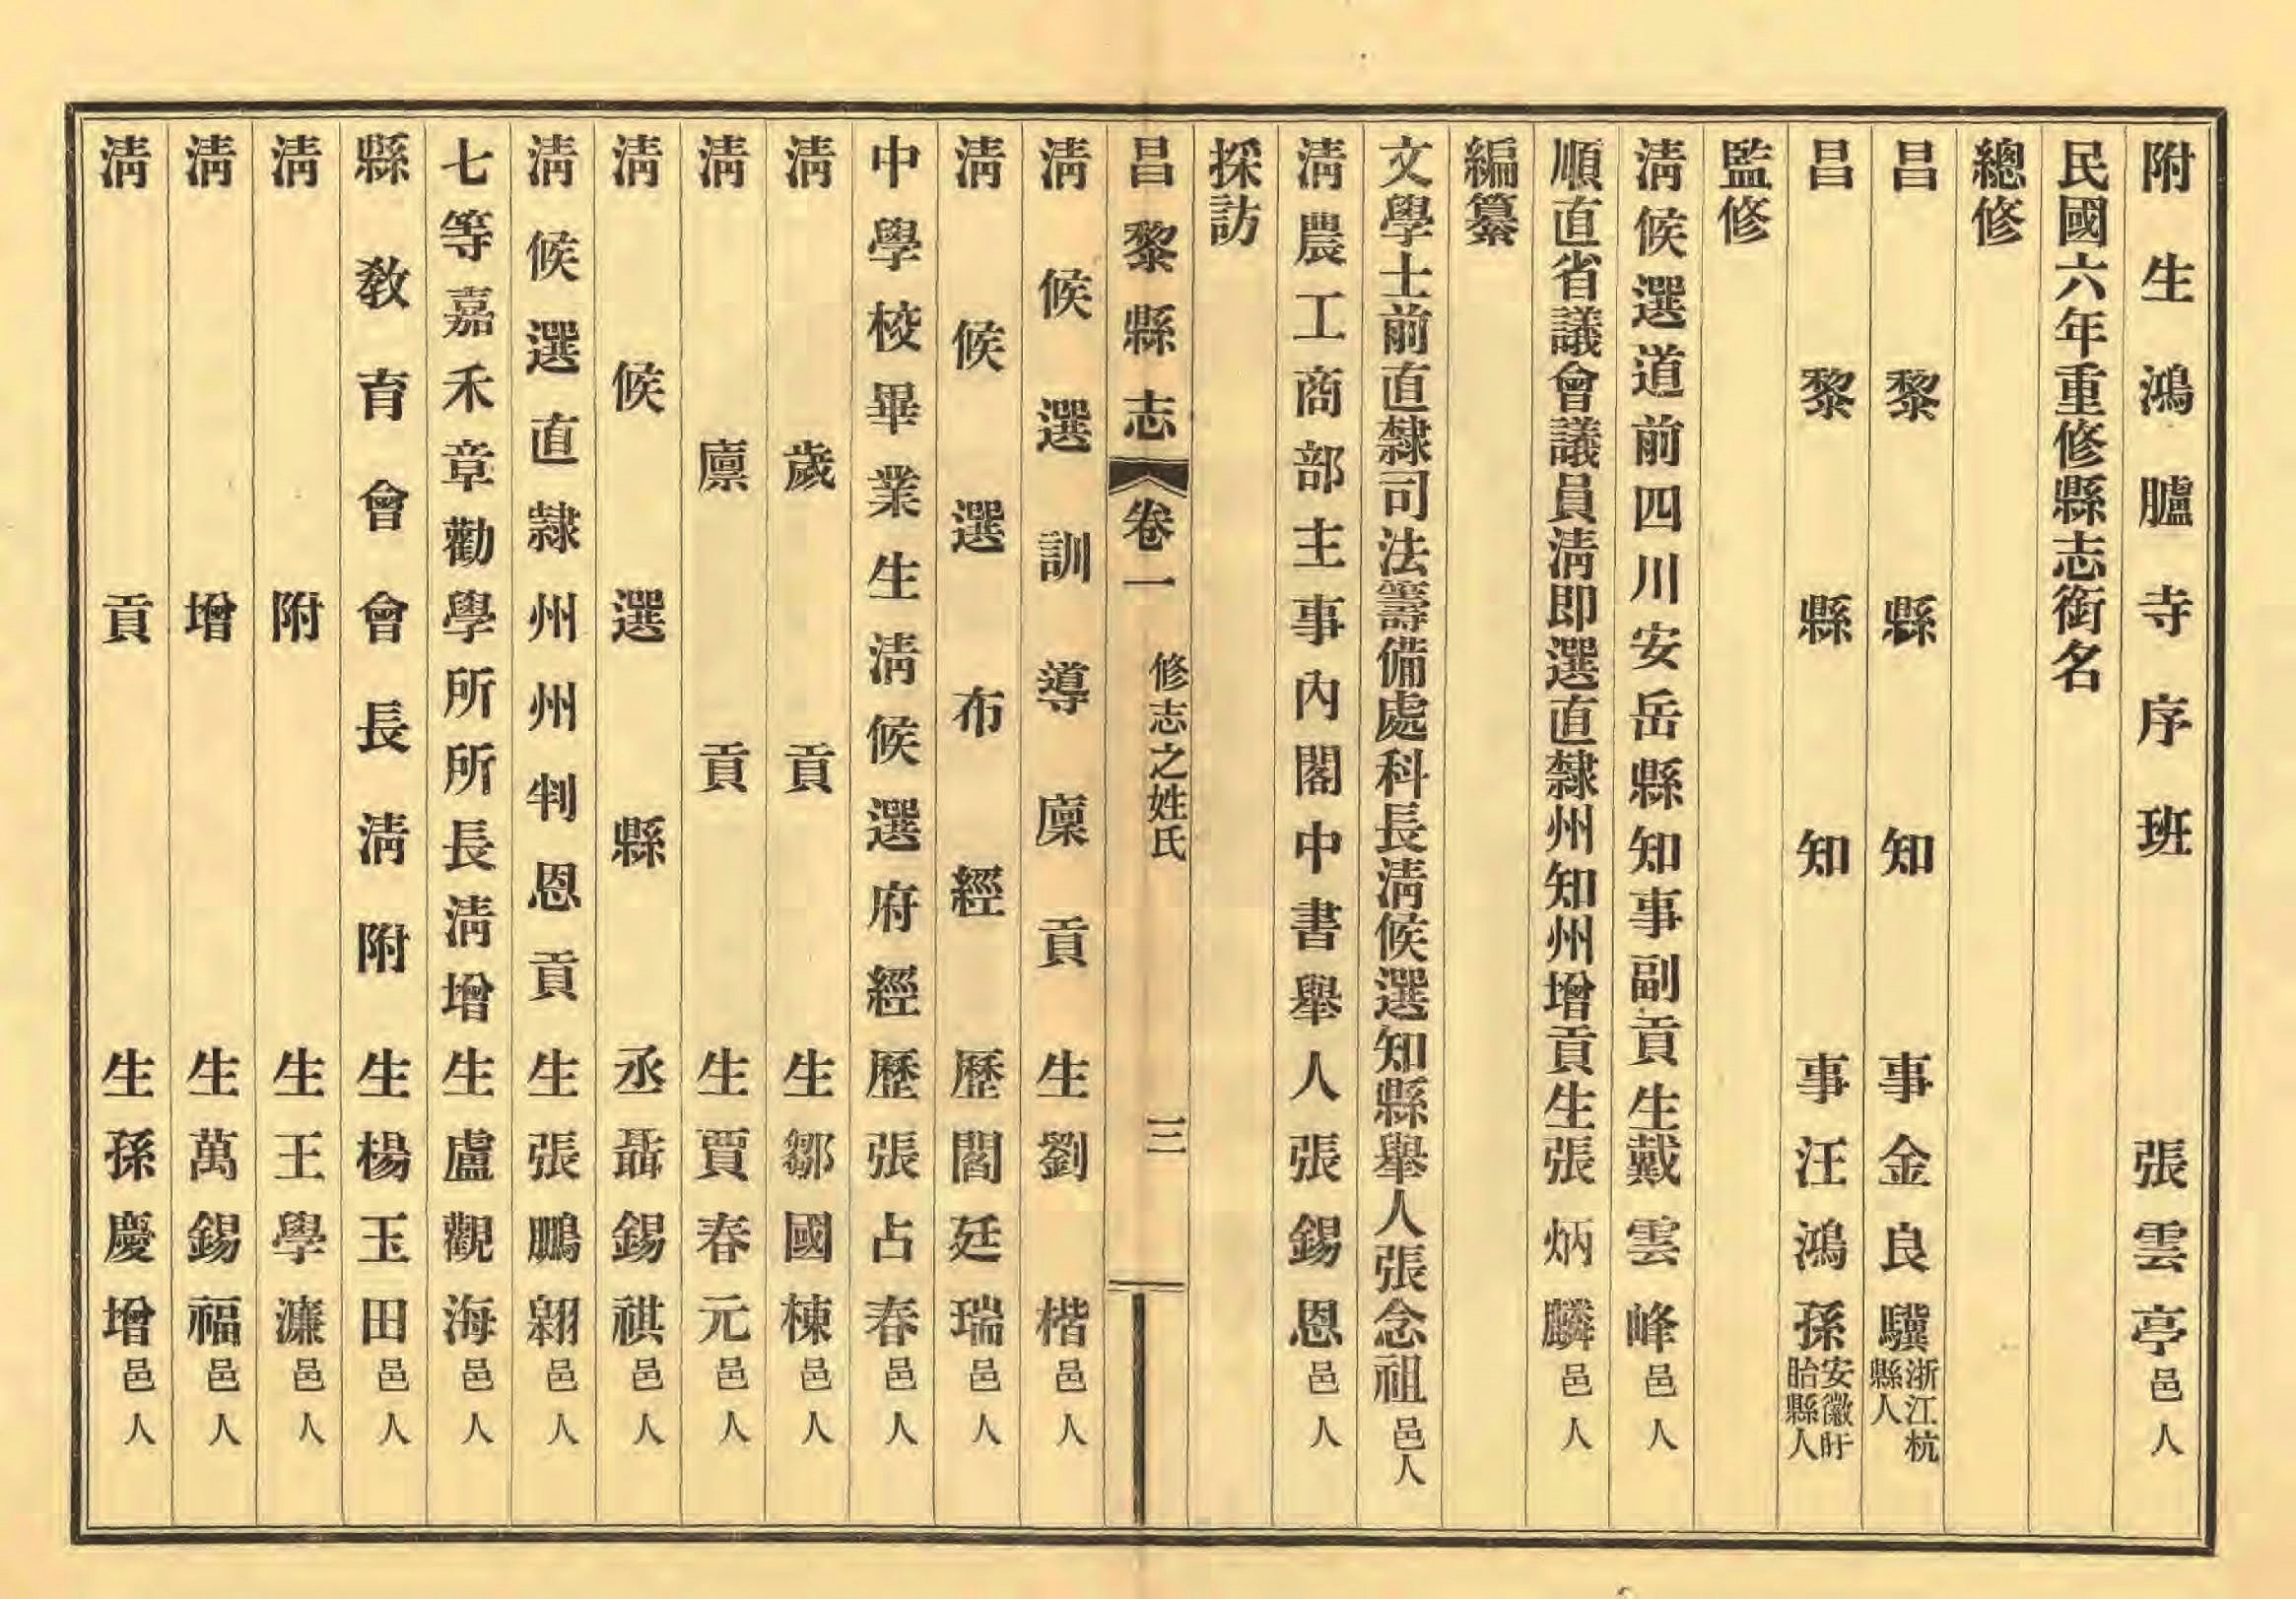 附生鴻臚寺序班張雲亭邑人
民國六年重修縣志銜名
總修
昌黎縣知事金良驥浙江杭縣人
昌黎縣知事汪鴻孫安徽盱眙縣人
監修
淸候選道前四川安岳縣知事副貢生戴雲峰邑人
順直省議會議員淸即選直隸州知州增貢生張炳麟邑人
編纂
文學士前直隸司法籌備處科長淸候選知縣舉人張念祖邑人
淸農工商部主事內閣中書舉人張錫恩邑人
採訪
昌黎縣志 卷一 修志之姓氏 三
淸候選訓導廩貢生劉楷邑人
淸候選布經歷閻廷瑞邑人
中學校畢業生淸候選府經歷張占春邑人
淸歲貢生鄒國棟邑人
淸廩貢生賈春元邑人
淸候選縣丞聶錫祺邑人
淸候選直隸州州判恩貢生張鵬翱邑人
七等嘉禾章勸學所所長淸增生盧觀海邑人
縣敎育會會長淸附生楊玉田邑人
淸附生王學濂邑人
淸增生萬錫福邑人
淸貢生孫慶增邑人